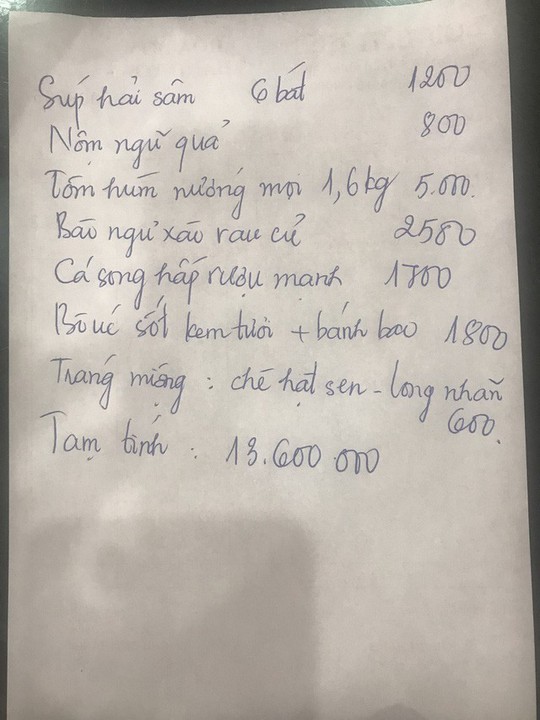 Súp hải sâm 6 bát 1200
Nộm ngũ quả 800
Tôm hùm nướng mọi 1,6kg 5.000.
Bào ngư xào rau củ 2580
Cá song hấp rượu mạnh 1700
Bò úc sốt kem tươi + bánh bao 1800
Tráng miệng : chè hạt sen - long nhãn
600.
Tạm tính : 13.600 000